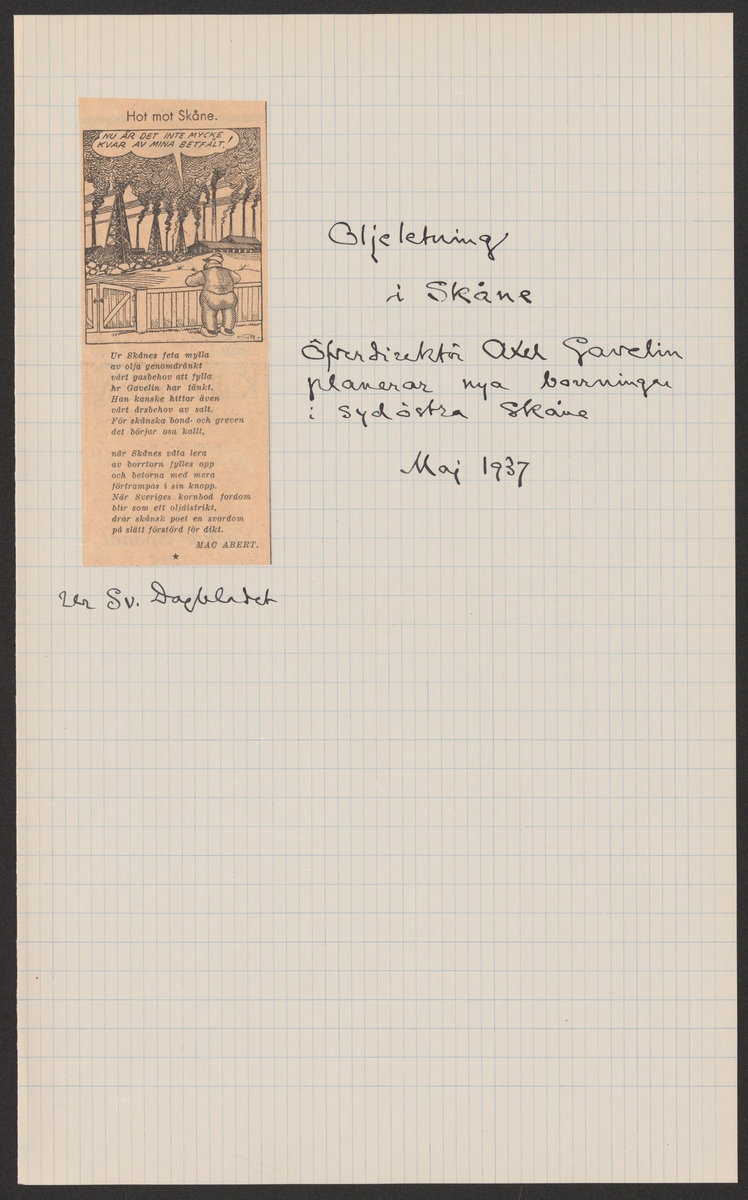 Hot mot Skåne.
NU ÄR DET INTE MYCKE
KVAR AV MINA BETFÄLT.!
Ur Skånes feta mylla
av olja genomdränkt
vårt gasbehov att fylla
hr Gavelin har tänkt.
Han kanske hittar även
vårt årsbehov av salt.
För skånska bond- och greven
det börjar osa kallt,
när Skånes våta lera
av borrtorn fylles opp
och betorna med mera
förtrampas i sin knopp.
När Sveriges kornbod fordom
blir som ett oljdistrikt,
drar skånsk poet en svordom
på slätt förstörd för dikt.
MAC ABERT.
★
ur Sv. Dagbladet
Oljeletning
i Skåne
Öfverdirektör Axel Gavelin
planerar nya borrningar
i sydöstra Skåne
Maj 1937